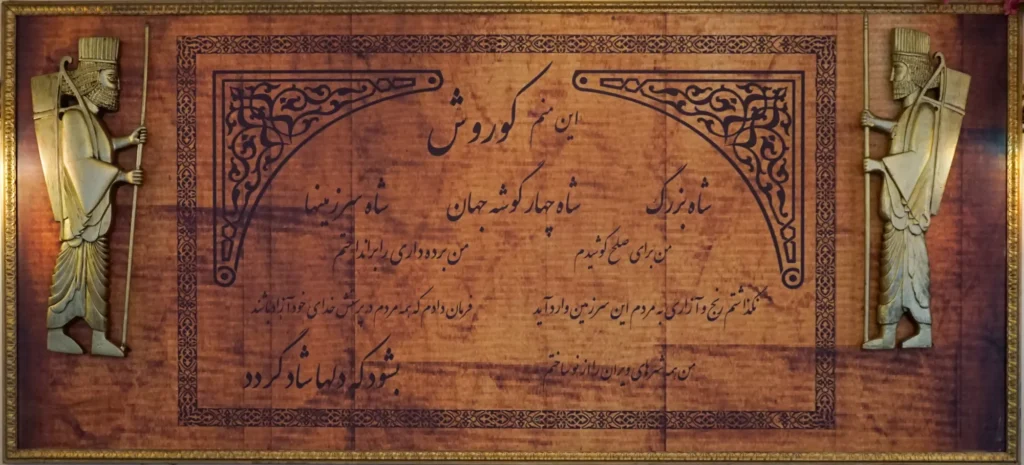 این منم کوروش
شاه بزرگ شاه چهار گوشه جهان شاه سرزمینها
من برای صلح کوشیدم من برده داری را برانداختم
نگذاشتم رنج و آزاری به مردم این سرزمین وارد آید فرمان دادم که همه مردم در پرستش خدای خود آزاد باشند
من همه شهرهای ویران را از نو ساختم بشود که دلها شاد گردد